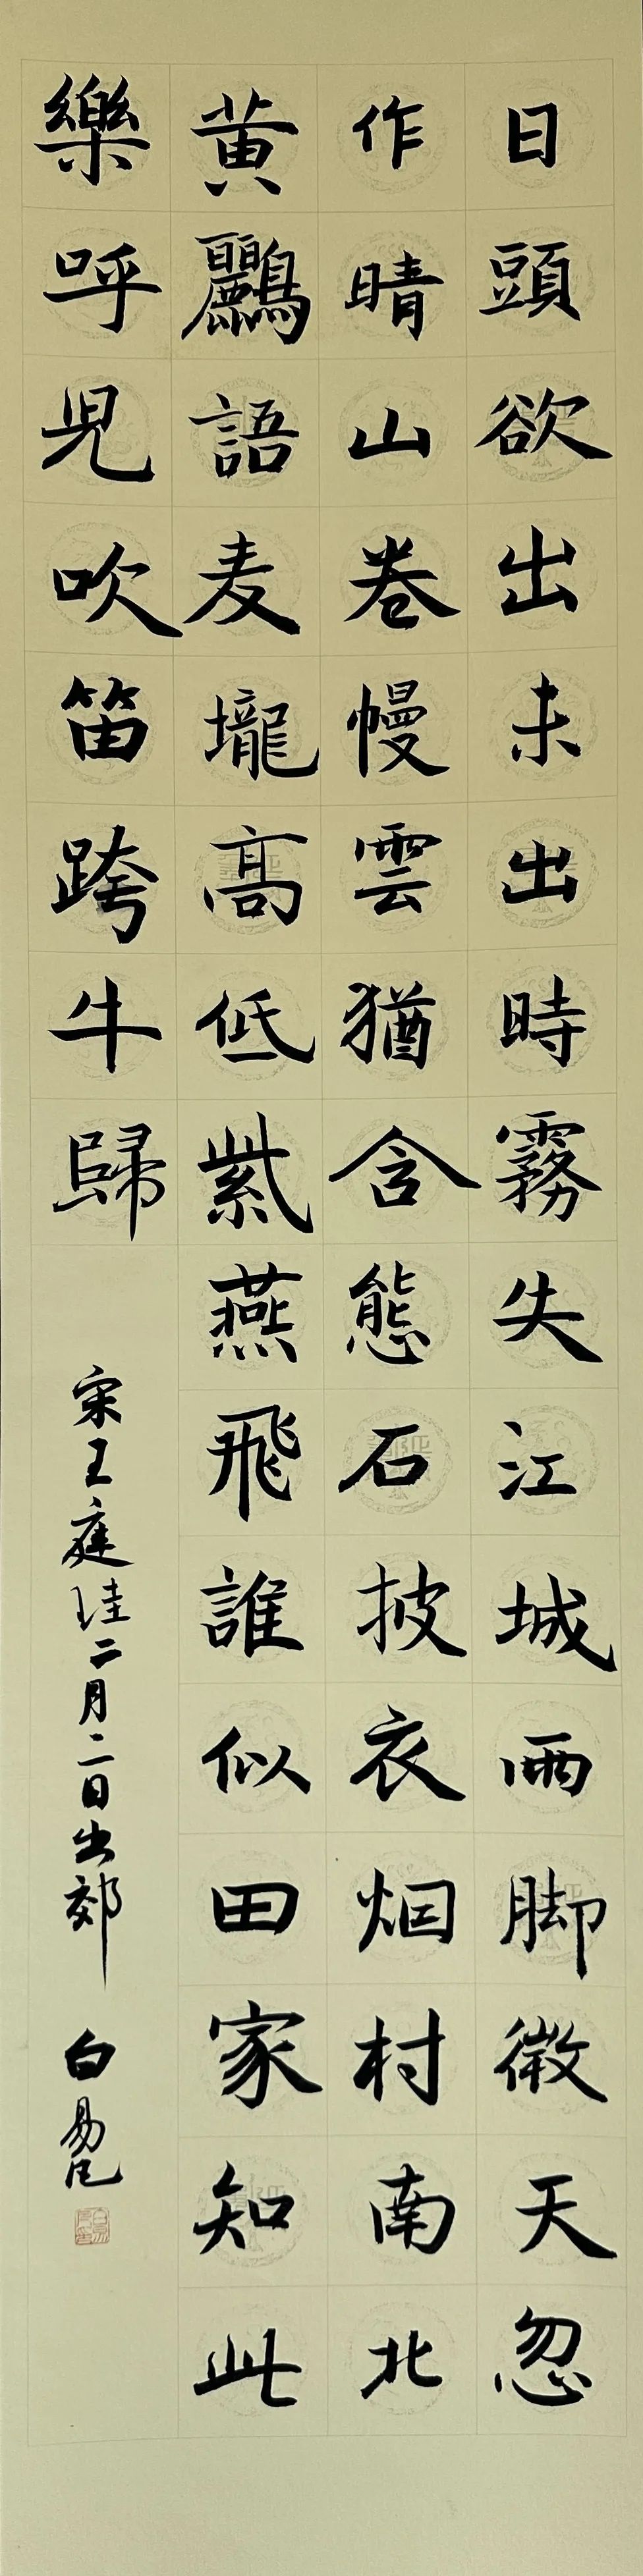 日頭欲出未出時霧失江城雨脚微天忽
作晴山卷幔雲猶含態石披衣烟村南北
黄鸝語麦壠高低紫燕飛誰似田家知此
樂呼児吹笛跨牛歸
宋王庭珪二月二日出郊
白易